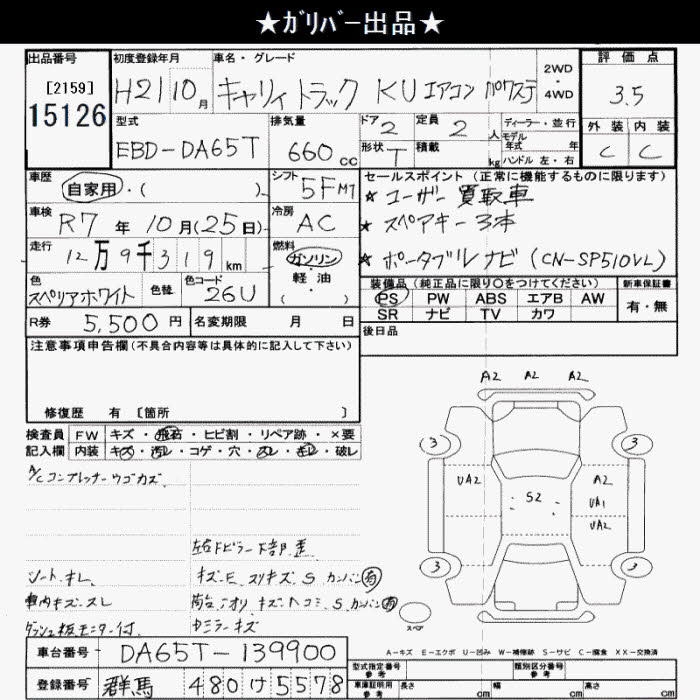 ★ガリバー出品★
出品番号
[2159]
15126
初度登録年月
H21 10月
車名・グレード
キャリィ トラック KU エアコン パワステ
2WD・4WD
評価点
3.5
外装 内装
C C
型式
EBD-DA65T
排気量
660cc
ドア 2
定員 2人
形状 T
積載 kg
ディーラー・並行
モデル年式 年
ハンドル 左・右
車歴
自家用・( )
シフト
5F MT
車検
R7年10月(25日)
冷房
AC
走行
12万9千319km
燃料
ガソリン・軽油・( )
色
スペリアホワイト
色替
色コード
26U
R券
5,500円
名変期限 月 日
セールスポイント (正常に機能するものに限ります)
★ ユーザー買取車
★ スペアキー3本
★ ポータブルナビ(CN-SP510VL)
装備品(純正品に限り○をつけてください)
PS PW ABS エアB AW
SR ナビ TV カワ
新車保証書
有・無
後日品
注意事項申告欄(不具合内容等は具体的に記入して下さい)
修復歴 有 〔箇所 〕
検査員記入欄
FW キズ・飛石・ヒビ割・リペア跡・×要
内装 キズ・汚レ・コゲ・穴・スレ・キレ・破レ
A/Cコンプレッサーウゴカズ
シートキレ
車内キズ・スレ
ダッシュ板モニター付
左右Fピラー下部歪
キズE スリキズ S カンバン有
荷台アオリ キズヘコミ S カンバン有
ミラーキズ
A2 A2 A2
3 3
UA2 A2
S2 UA1
UA2
3 3
スペア
A-キズ E-エクボ U-凹み W-補修跡 S-サビ C-腐食 XX-交換済
車台番号
DA65T-139900
登録番号
群馬 480 け 5578
型式指定番号
参考
類別区分番号
参考
車庫証明用
参考
長さ cm
幅 cm
高さ cm